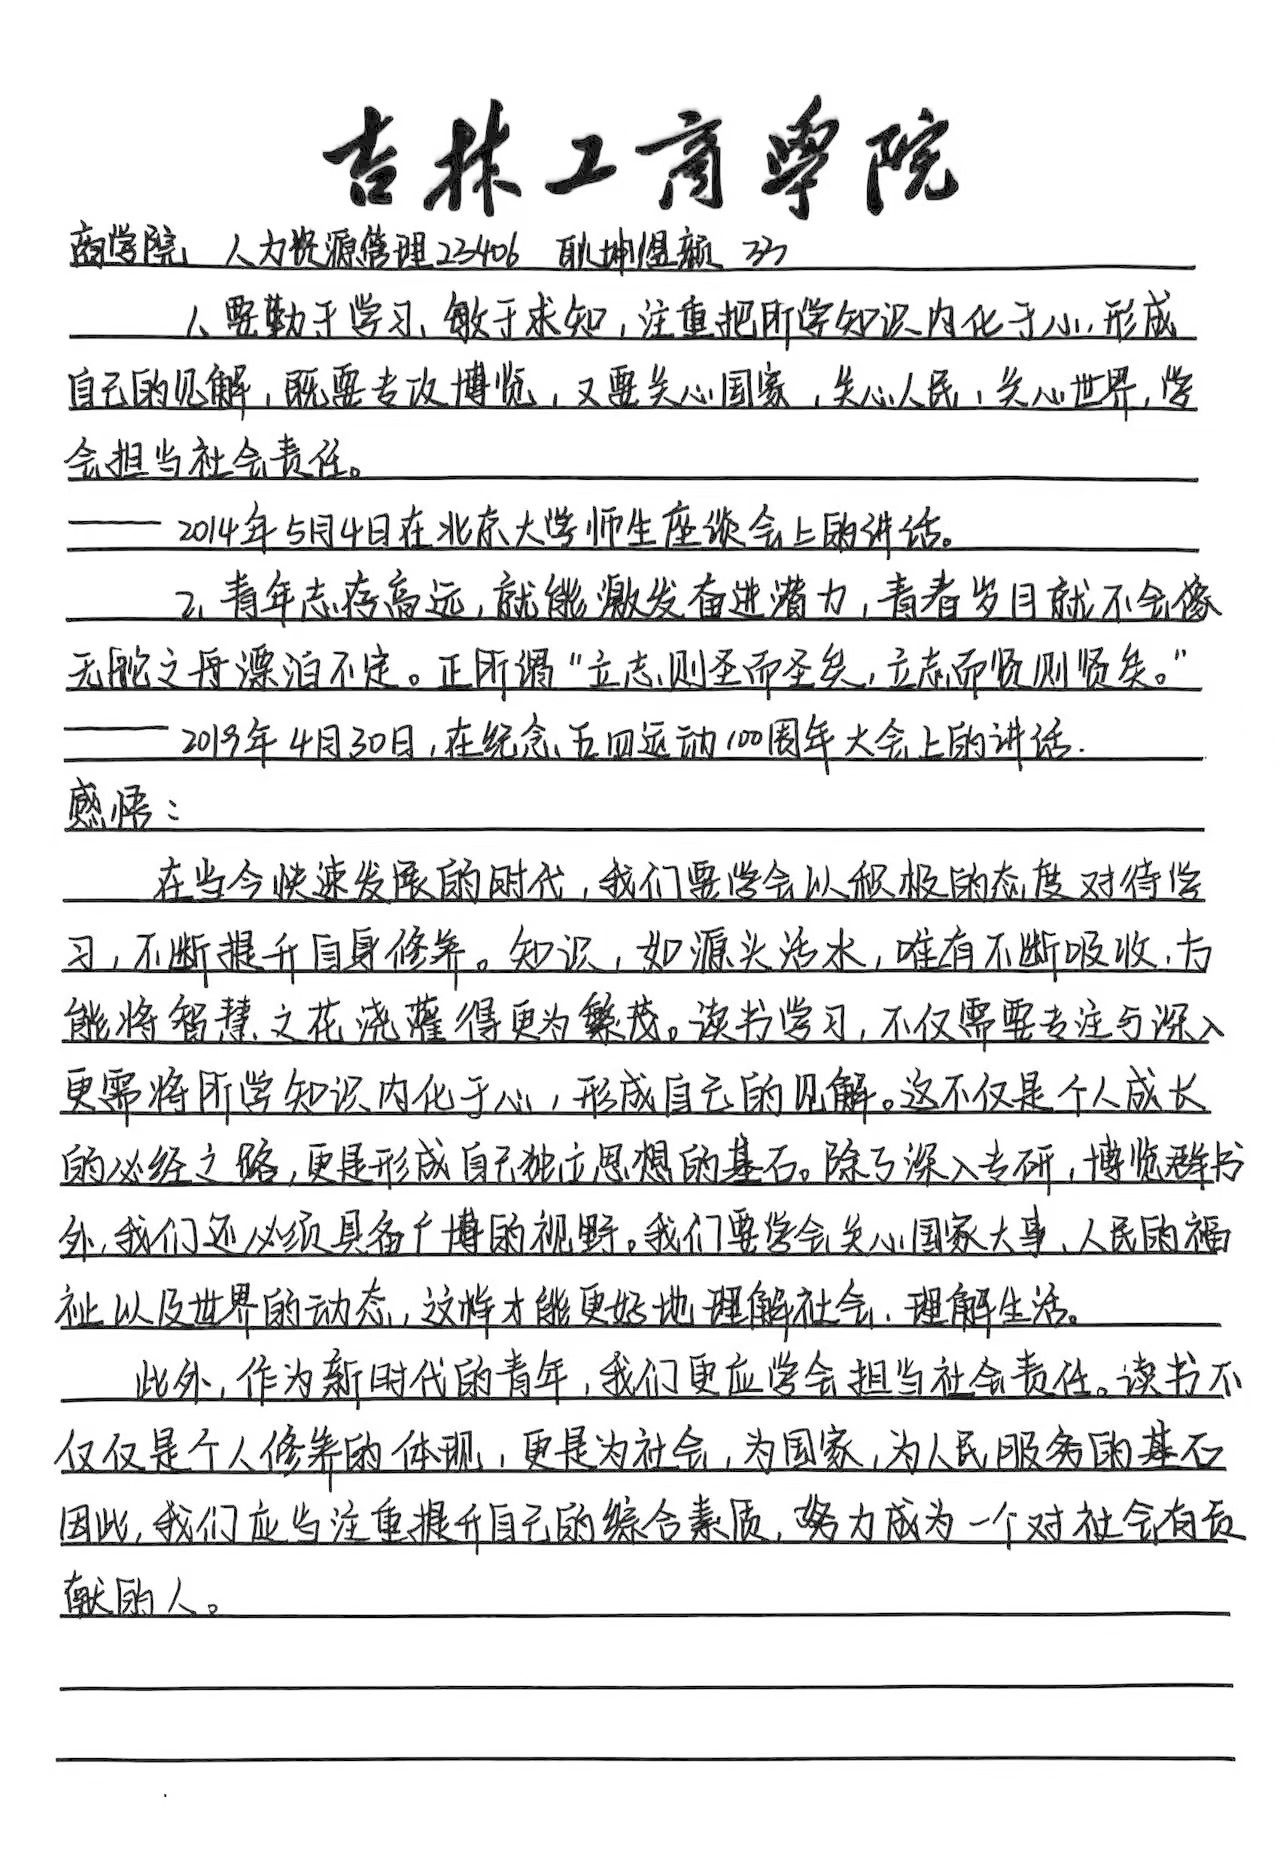 吉林工商学院
商学院 人力资源管理23406 耿坤煜颜 33
1、要勤于学习、敏于求知，注重把所学知识内化于心，形成
自己的见解，既要专攻博览，又要关心国家，关心人民，关心世界，学
会担当社会责任。
——2014年5月4日在北京大学师生座谈会上的讲话。
2、青年志存高远，就能激发奋进潜力，青春岁月就不会像
无舵之舟漂泊不定。正所谓“立志则圣而圣矣，立志而贤则贤矣。”
——2019年4月30日，在纪念五四运动100周年大会上的讲话.
感悟：
在当今快速发展的时代，我们要学会以积极的态度对待学
习，不断提升自身修养。知识，如源头活水，唯有不断吸收，方
能将智慧之花浇灌得更为繁茂。读书学习，不仅需要专注与深入
更需将所学知识内化于心，形成自己的见解。这不仅是个人成长
的必经之路，更是形成自己独立思想的基石。除了深入专研，博览群书
外，我们还必须具备广博的视野。我们要学会关心国家大事、人民的福
祉以及世界的动态，这样才能更好地理解社会、理解生活。
此外，作为新时代的青年，我们更应学会担当社会责任。读书不
仅仅是个人修养的体现，更是为社会，为国家，为人民服务的基石
因此，我们应当注重提升自己的综合素质，努力成为一个对社会有贡
献的人。